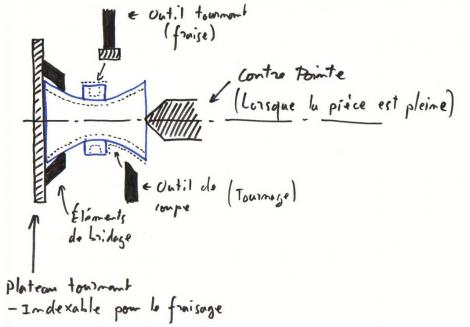 Outil tournant
(fraise)
Contre Pointe
(Lorsque la pièce est pleine)
Outil de
coupe
(Tournage)
Éléments
de bridage
Plateau tournant
- Indexable pour le fraisage